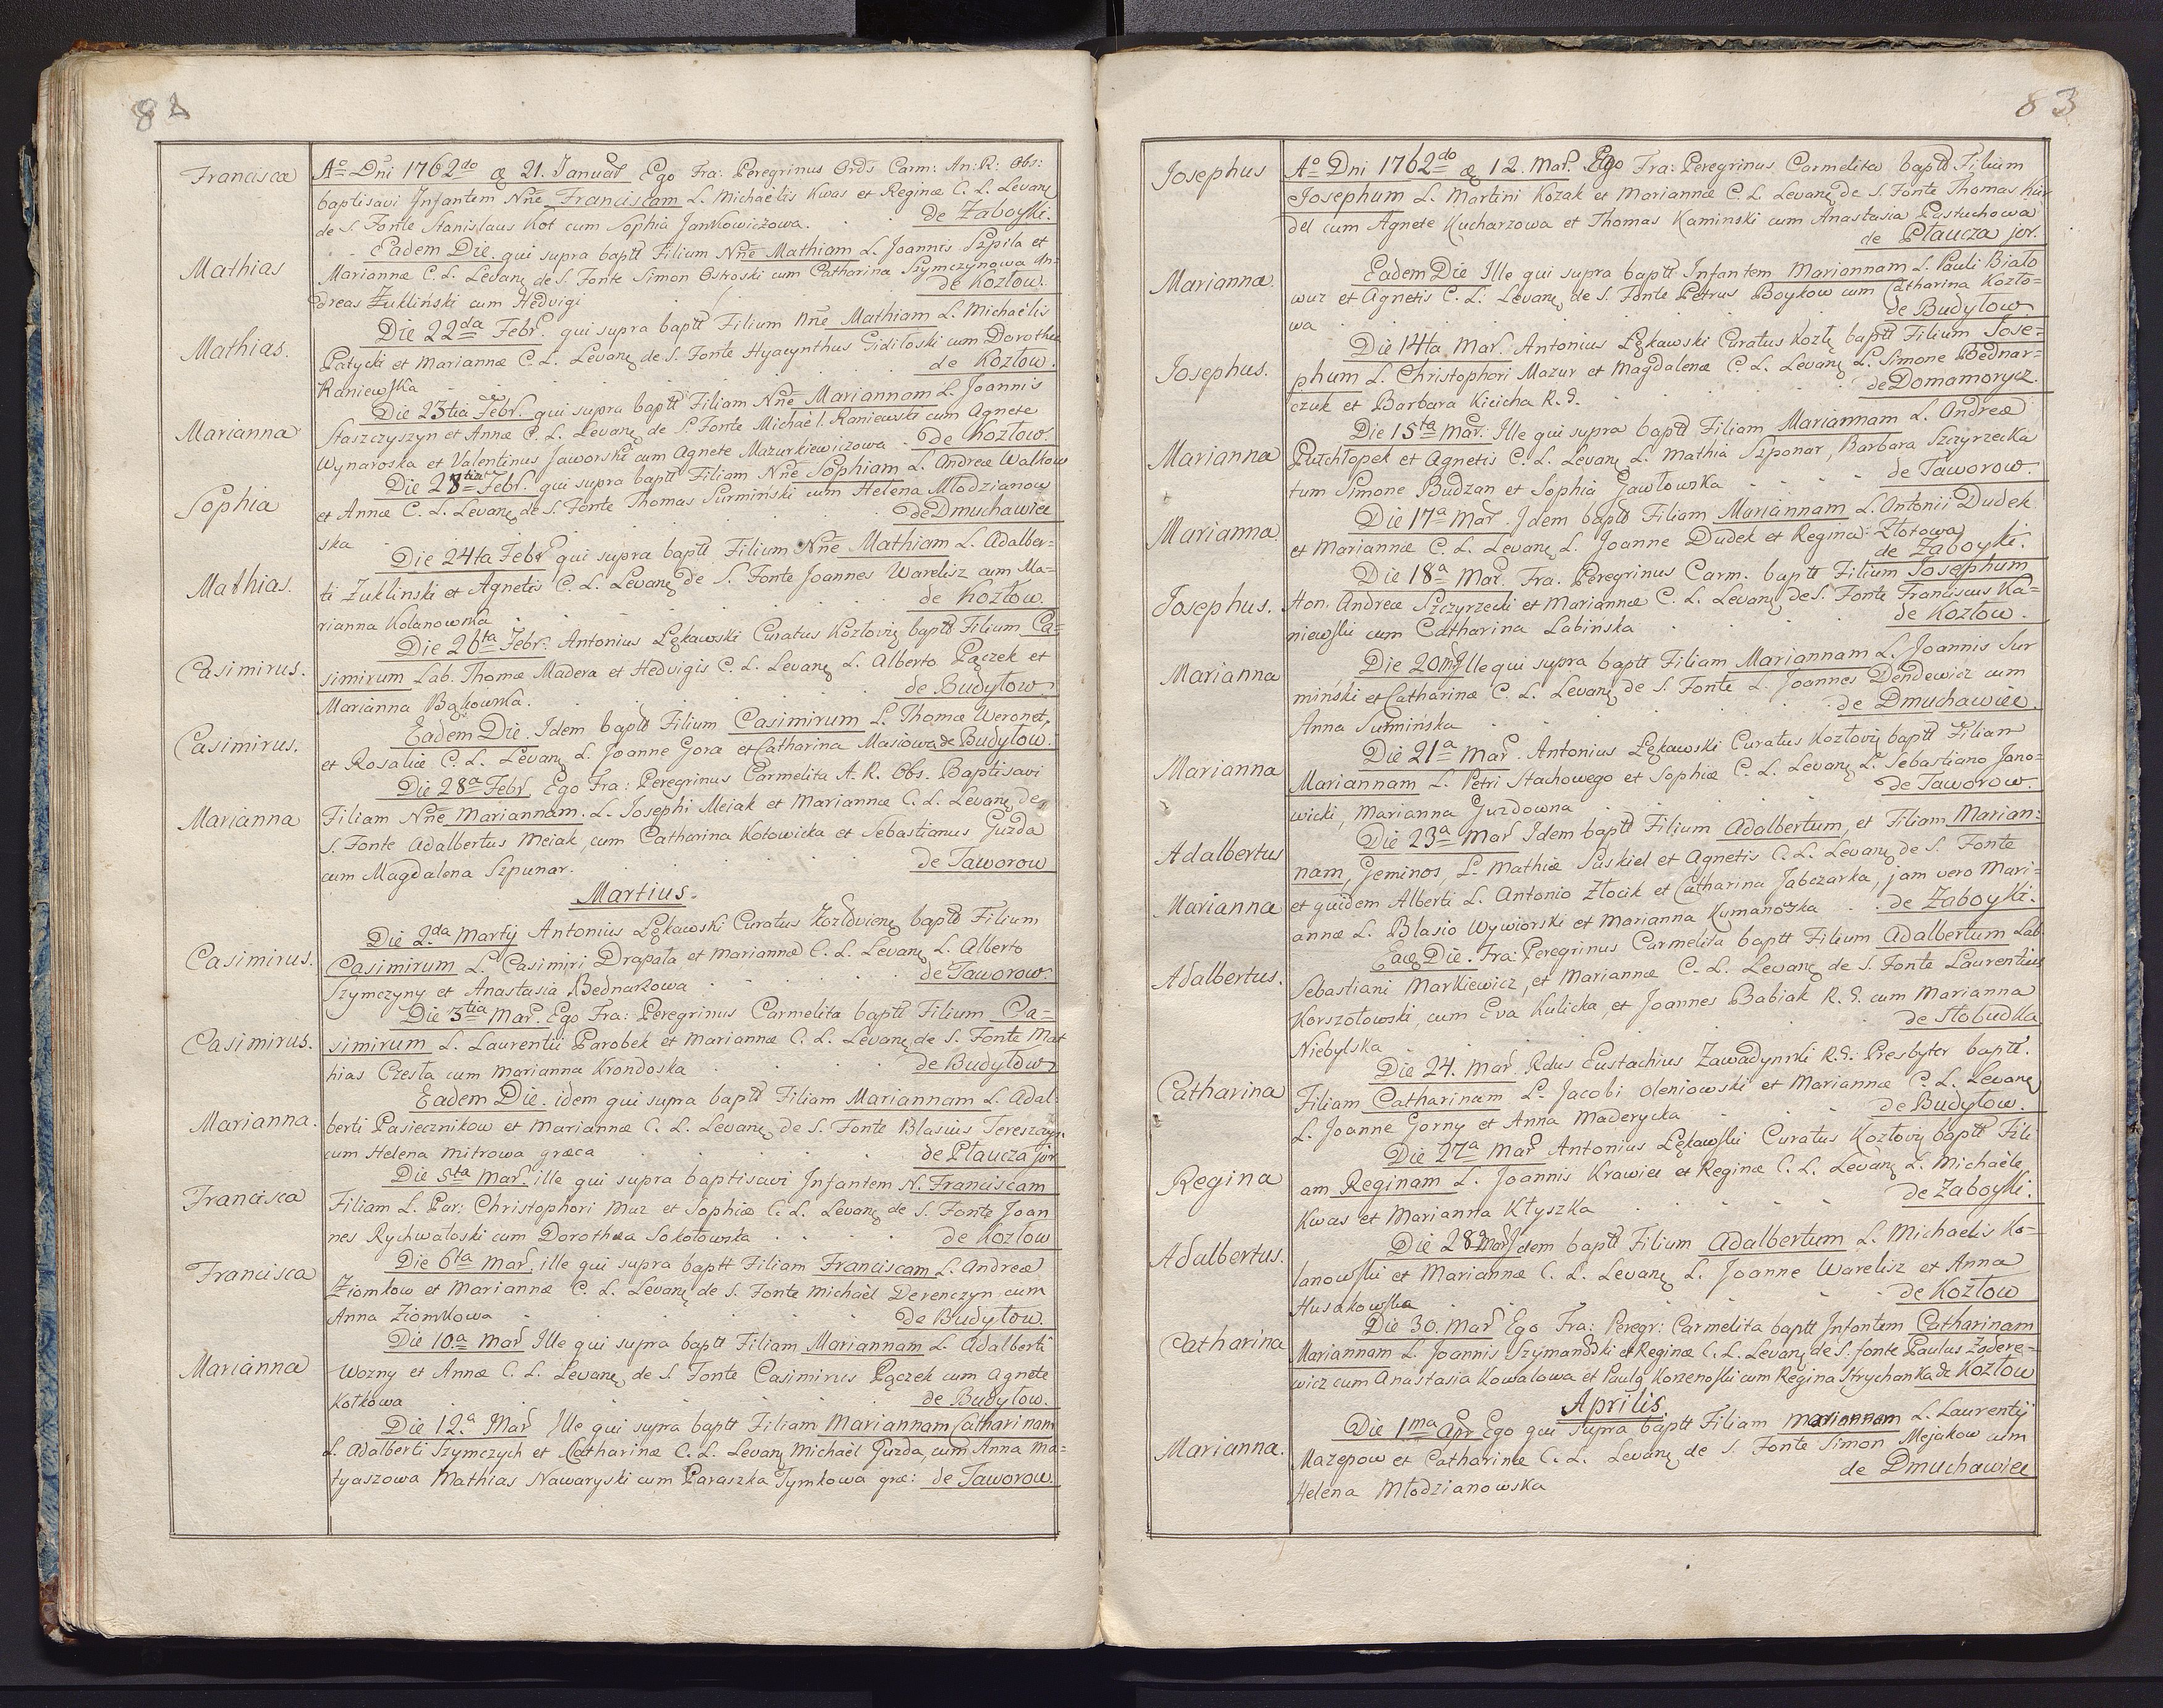 82
Francisca
Aō Dni 1762do æ 21. Januar Ego Fra: Peregrinus Ords Carm: An: R: Obs:
baptisavi Infantem Nne Franciscam L. Michaëlis Kwas et Reginæ C. L. Levane
de S. Fonte Stanislaus Kot cum Sophia Jankowiczowa. de Zaboyki.
Mathias
Eadem Die. qui supra baptt Filium Nne Mathiam L. Joannis Szpila et
Mariannæ C. L. Levane de S. Fonte Simon Ostroski cum Catharina Szymczynowa An-
dreas Zukliński cum Hedvigi de Kozłow.
Mathias.
Die 22da Febr. qui supra baptt Filium Nne Mathiam L. Michaëlis
Patycki et Mariannæ C. L. Levane de S. Fonte Hyacynthus Giditoski cum Dorothea
Raniewska de Kozłow.
Marianna
Die 23tia Febr. qui supra baptt Filiam Nne Mariannam L. Joannis
Staszczyszyn et Annæ C. L. Levane de S. Fonte Michaël. Raniewski cum Agnete
Wynaroska et Valentinus Jaworski cum Agnete Mazurkiewiczowa de Kozłow.
Sophia
Die 28 Febr. qui supra baptt Filiam Nne Sophiam L. Andreæ Walkow
et Annæ C. L. Levane de S. Fonte Thomas Surmiński cum Helena Młodzianow
ska de Dmuchawiec
Mathias.
Die 24ta Febr qui supra baptt Filium Nne Mathiam L. Adalber=
ti Zuklinski et Agnetis C. L. Levane de S. Fonte Joannes Warelisz cum Ma=
rianna Kolanowska de Kozłow.
Casimirus.
Die 26ta Febr: Antonius Lękawski Curatus Kozłovię baptt Filium Ca=
simirum Lab. Thomæ Madera et Hedvigis C. L. Levane L. Alberto Pączek et
Marianna Bąkowska. de Budyłow
Casimirus.
Eadem Die. Idem baptt Filium Casimirum L. Thomæ Weronet,
et Rosaliæ C. L. Levane L. Joanne Gora et Catharina Masiowa de Budyłow.
Marianna
Die 28a Febr. Ego Fra: Peregrinus Carmelita A. R. Obs. Baptisavi
Filiam Nne Mariannam. L. Josephi Meiak et Mariannæ C. L. Levane de
S. Fonte Adalbertus Meiak, cum Catharina Kotowicka et Sebastianus Guzda
cum Magdalena Szpunar. de Taworow
Martius.
Casimirus.
Die 2da Martij Antonius Lękawski Curatus Kozłoviene baptt Filium
Casimirum L. Casimiri Drapata et Mariannæ C. L. Levane L. Alberto
Szymczyny et Anastasia Bednarowa de Taworow.
Casimirus.
Die 3tia Mar. Ego Fra: Peregrinus Carmelita baptt Filium Ca=
simirum L. Laurentii Parobek et Mariannæ C. L. Levane de S. Fonte Mat
hias Czesta cum Marianna Krondoska de Budyłow
Marianna.
Eadem Die. idem qui supra baptt Filiam Mariannam L. Adal.
berti Pasiecznikow et Mariannæ C. L. Levane de S. Fonte Blasius Tereszczyn
cum Helena Mitrowa græca de Płaucza jor
Francisca
Die 5ta Mar. ille qui supra baptisavi Infantem N. Franciscam
Filiam L. Par: Christophori Mur et Sophiæ C. L. Levane de S. Fonte Joan
nes Rychwatoski cum Dorothea Sokołowska de Kozłow
Francisca
Die 6ta Mar. ille qui supra baptt Filiam Franciscam L. Andreæ
Ziomkow et Mariannæ C. L. Levane de S. Fonte Michaël Derenczyn cum
Anna Ziomkowa de Budyłow.
Marianna
Die 10.a Mar Ille qui supra baptt Filiam Mariannam L. Adalberti
Wozny et Annæ C. L. Levane de S. Fonte Casimirus Pączek cum Agnete
Kotkowa de Budyłow.
Die 12.a Mar Ille qui supra baptt Filiam Mariannam Catharinam
L. Adalberti Szymczych et Catharinæ C. L. Levane Michaël Guzda, cum Anna Ma=
tyaszowa Mathias Nawaryski cum Paraszka Tymkowa græ: de Taworow.
83
Josephus
Aō Dni 1762do æ 12. Mar. Ego Fra: Peregrinus Carmelita baptt Filium
Josephum L. Martini Kozak et Mariannæ C. L. Levane de S. Fonte Thomas Kur
del cum Agnete Kucharzowa et Thomas Kaminski cum Anastasia Pastuchowa
de Płaucza jor.
Marianna.
Eadem Die Ille qui supra baptt Infantem Mariannam L. Pauli Biało
wuz et Agnetis C. L. Levane de S. Fonte Petrus Boykow cum Catharina Kozło=
wa de Budyłow
Josephus.
Die 14ta Mar. Antonius Lękawski Curatus Kozłę baptt Filium Jose=
phum L. Christophori Mazur et Magdalenæ C. L. Levane L. Simone Bednar=
czuk et Barbara Kicicha R. G. de Domamorycz.
Marianna
Die 15ta Mar. Ille qui supra baptt Filiam Mariannam L. Andreæ
Putchłopek et Agnetis C. L. Levane L. Mathia Szponar, Barbara Szczyrzecka
tum Simone Budzan et Sophia Gawłowska de Taworow.
Marianna.
Die 17a Mar. Idem baptt Filiam Mariannam L. Antonii Dudek
et Mariannæ C. L. Levane L. Joanne Dudek et Regina Złotowa
de Zaboyki.
Josephus.
Die 18a Mar. Fra. Peregrinus Carm. baptt Filium Josephum
Hon. Andreæ Szczyrzecki et Mariannæ C. L. Levane de S. Fonte Franciscus Ka=
niewski cum Catharina Labińska de Kozłow.
Marianna
Die 20 Mar Ille qui supra baptt Filiam Mariannam L. Joannis Sur
miński et Catharinæ C. L. Levane de S. Fonte L. Joannes Dendewicz cum
Anna Surmińska de Dmuchawiec.
Marianna
Die 21a Mar. Antonius Lękawski Curatus Kozłovię baptt Filiam
Mariannam L. Petri Stachowego et Sophiæ C. L. Levane L. Sebastiano Jano=
wicki, Marianna Guzdowna de Taworow.
Adalbertus
Marianna
Die 23a Mar Idem baptt Filium Adalbertum, et Filiam Marian:
nam, Geminos, L. Mathiæ Puskiel et Agnetis C. L. Levane de S. Fonte
et quidem Alberti L. Antonio Złocik et Catharina Jabczarka, jam vero Mari=
annæ L. Blasio Wywiorski et Marianna Kumanoska de Zaboyki.
Adalbertus.
Eaē Die. Fra: Peregrinus Carmelita baptt Filium Adalbertum Lab
Sebastiani Markiewicz, et Mariannæ C. L. Levane de S. Fonte Laurentius
Korszołowski, cum Eva Kulicka, et Joannes Babiak R. G. cum Marianna
Niebylska de Słobudka
Catharina
Die 24. Mar. Rdus Eustachius Zawadynski R. G. Presbyter baptt.
Filiam Catharinam L. Jacobi Oleniowski et Mariannæ C. L. Levane
L. Joanne Gorny et Anna Maderycka de Budyłow.
Regina
Die 27a Mar Antonius Lękawski Curatus Kozłovię baptt Fili
am Reginam L. Joannis Krawiec et Reginæ C. L. Levane L. Michaële
Kwas et Marianna Kłyszka de Zaboyki.
Adalbertus.
Die 28 Mar Idem baptt Filium Adalbertum L. Michaelis Ko=
lanowski et Mariannæ C. L. Levane L. Joanne Warelisz et Anna
Husakowska de Kozłow
Catharina
Die 30. Mar Ego Fra: Peregr: Carmelita baptt Infantem Catharinam
Mariannam L. Joannis Szymanoski et Reginæ C. L. Levane de S. fonte Paulus Zadere=
wicz cum Anastasia Kowalowa et Paulg Korzenoski cum Regina Strychanka de Kozłow
Aprilis
Marianna.
Die 1ma Apr Ego qui supra baptt Filiam Mariannam L. Laurentij
Mazepow et Catharinæ C. L. Levane de S. Fonte Simon Mejakow cum
Helena Młodzianowska de Dmuchawiec